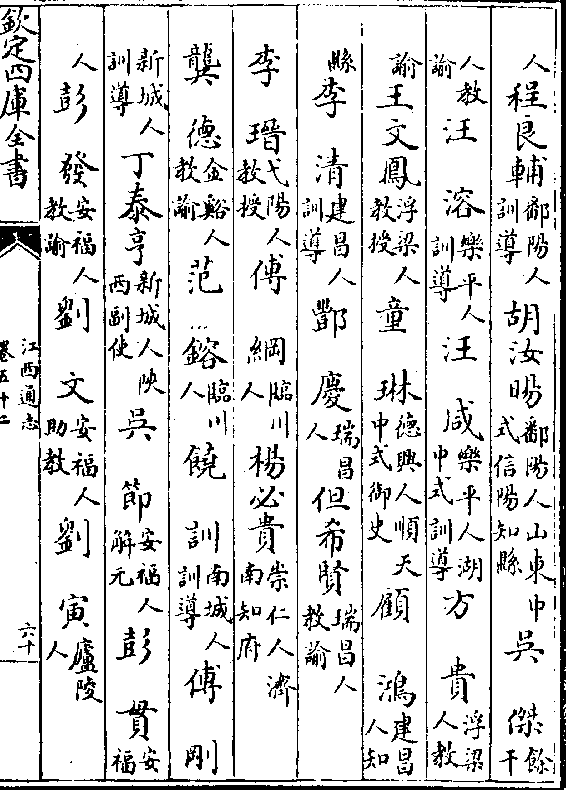 人程良輔鄱陽人訓導胡汝暘鄱陽人山東中式信陽知縣吳傑餘干
人教諭汪溶樂平人訓導汪咸樂平人湖中式訓導方貴浮梁人教
諭王文鳳浮梁人教授童琳德興人順天中式御史顧鴻建昌人知
縣李清建昌人訓導酆慶瑞昌人但希賢瑞昌人教諭
李瑨弋陽人教授傅綱臨川人楊必貴崇仁人濟南知府
龔德金谿人教諭范鎔臨川人饒訓南城人訓導傅剛
新城人訓導丁泰亨新城人陜西副使吳節安福人解元彭貫安福
人彭發安福人教諭劉文安福人助教劉寅廬陵人
欽定四庫全書
江西通志
卷五十二
六十